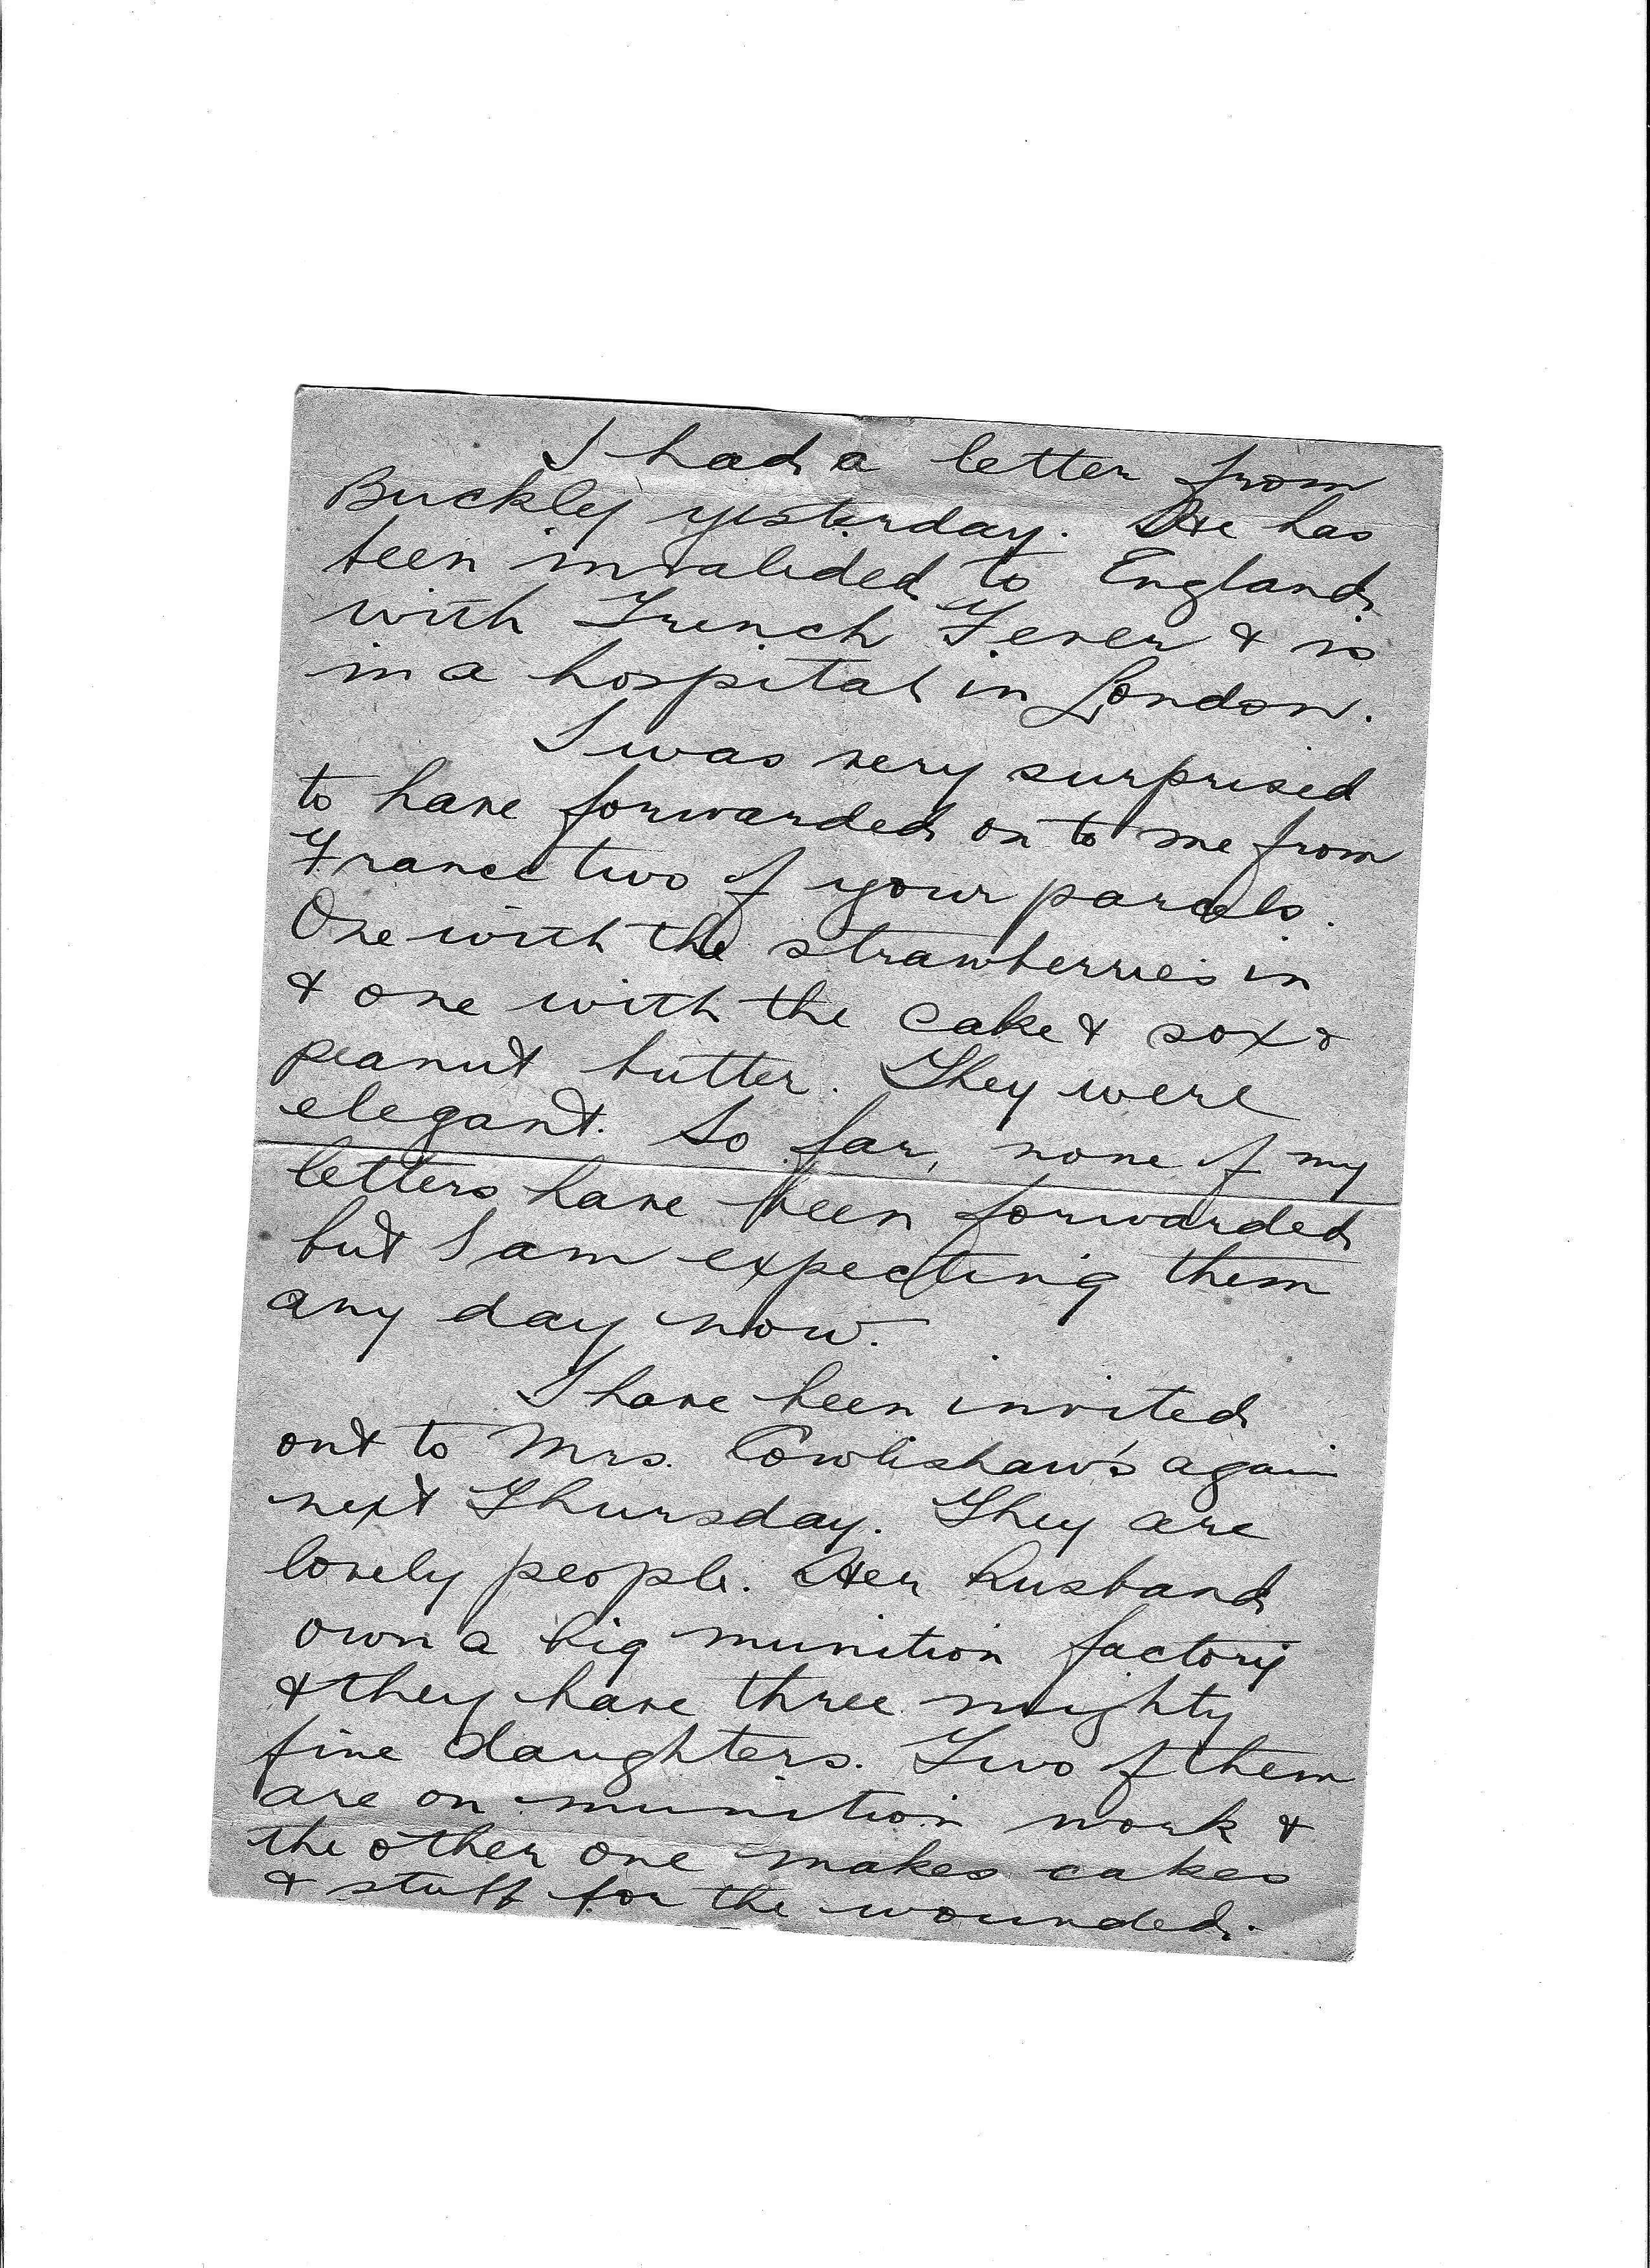 I had a letter from
Buckley yesterday. He has
been invalided to England
with Trench Fever & is
in a hospital in London.
I was very surprised
to have forwarded on to me from
France two of your parcels.
One with the strawberries in
& one with the cake & sox &
peanut butter. They were
elegant. So far, none of my
letters have been forwarded
but I am expecting them
any day now.
I have been invited
out to Mrs. Cowlishaw's again
next Thursday. They are
lovely people. Her husband
own a big munition factory
& they have three mighty
fine daughters. Two of them
are on munition work &
the other one makes cakes
& stuff for the wounded.